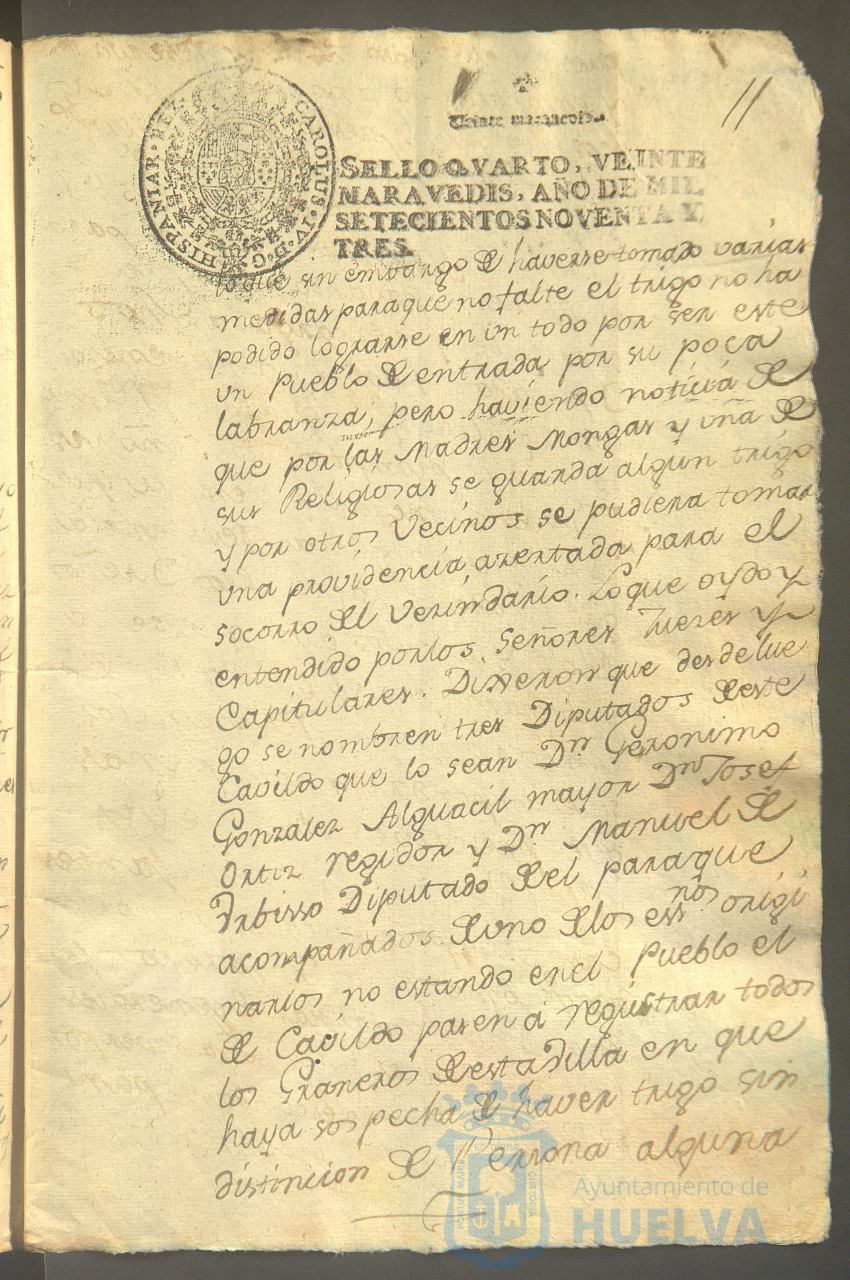 11
Veinte maravedis.
HISPANIAR. REX. CAROLUS. IV. D. G.
SELLO QVARTO, VEINTE
MARAVEDIS, AÑO DE MIL
SETECIENTOS NOVENTA Y
TRES.
lo que sin embargo de haverse tomado varias
medidas para que no falte el trigo no ha
podido lograrse en un todo por ser este
un Pueblo de entrada por su poca
labranza, pero haviendo noticia de
que por las Madres Mongas y una de
sus Religiosas se guarda algun trigo
y por otros Vecinos se pudiera tomar
una providencia azertada para el
socorro del Vezindario. Lo que oydo y
entendido por los Señores Juezes y
Capitulares. Dixeron que desde lue
go se nombren tres Diputados deste
Cavildo que lo sean Dn Geronimo
Gonzalez Alguacil mayor Dn Josef
Ortiz regidor y Dn Manuel de
Diputado del para que
acompañados de uno de los essnos origi
narios no estando en el Pueblo el
de Cavildo pasen a registrar todos
los Graneros desta dilla en que
haya sospecha de haver trigo sin
distincion de Persona alguna
Ayuntamiento de
HUELVA